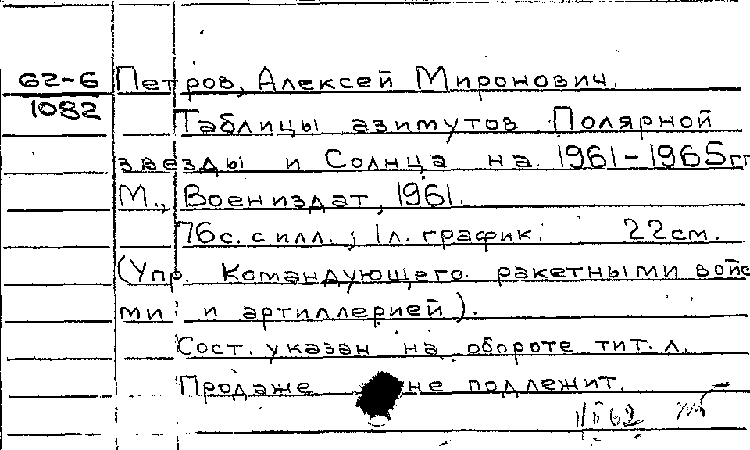 62-6 Петров, Алексей Миронович.
1082
Таблицы азимутов Полярной
звезды и Солнца на 1961-1965гг
М., Воениздат, 1961.
76с. с илл.; 1л. график. 22см.
(Упр. Командующего ракетными войс
ми и артиллерией).
Сост. указан на обороте тит. л.
Продаже не подлежит.